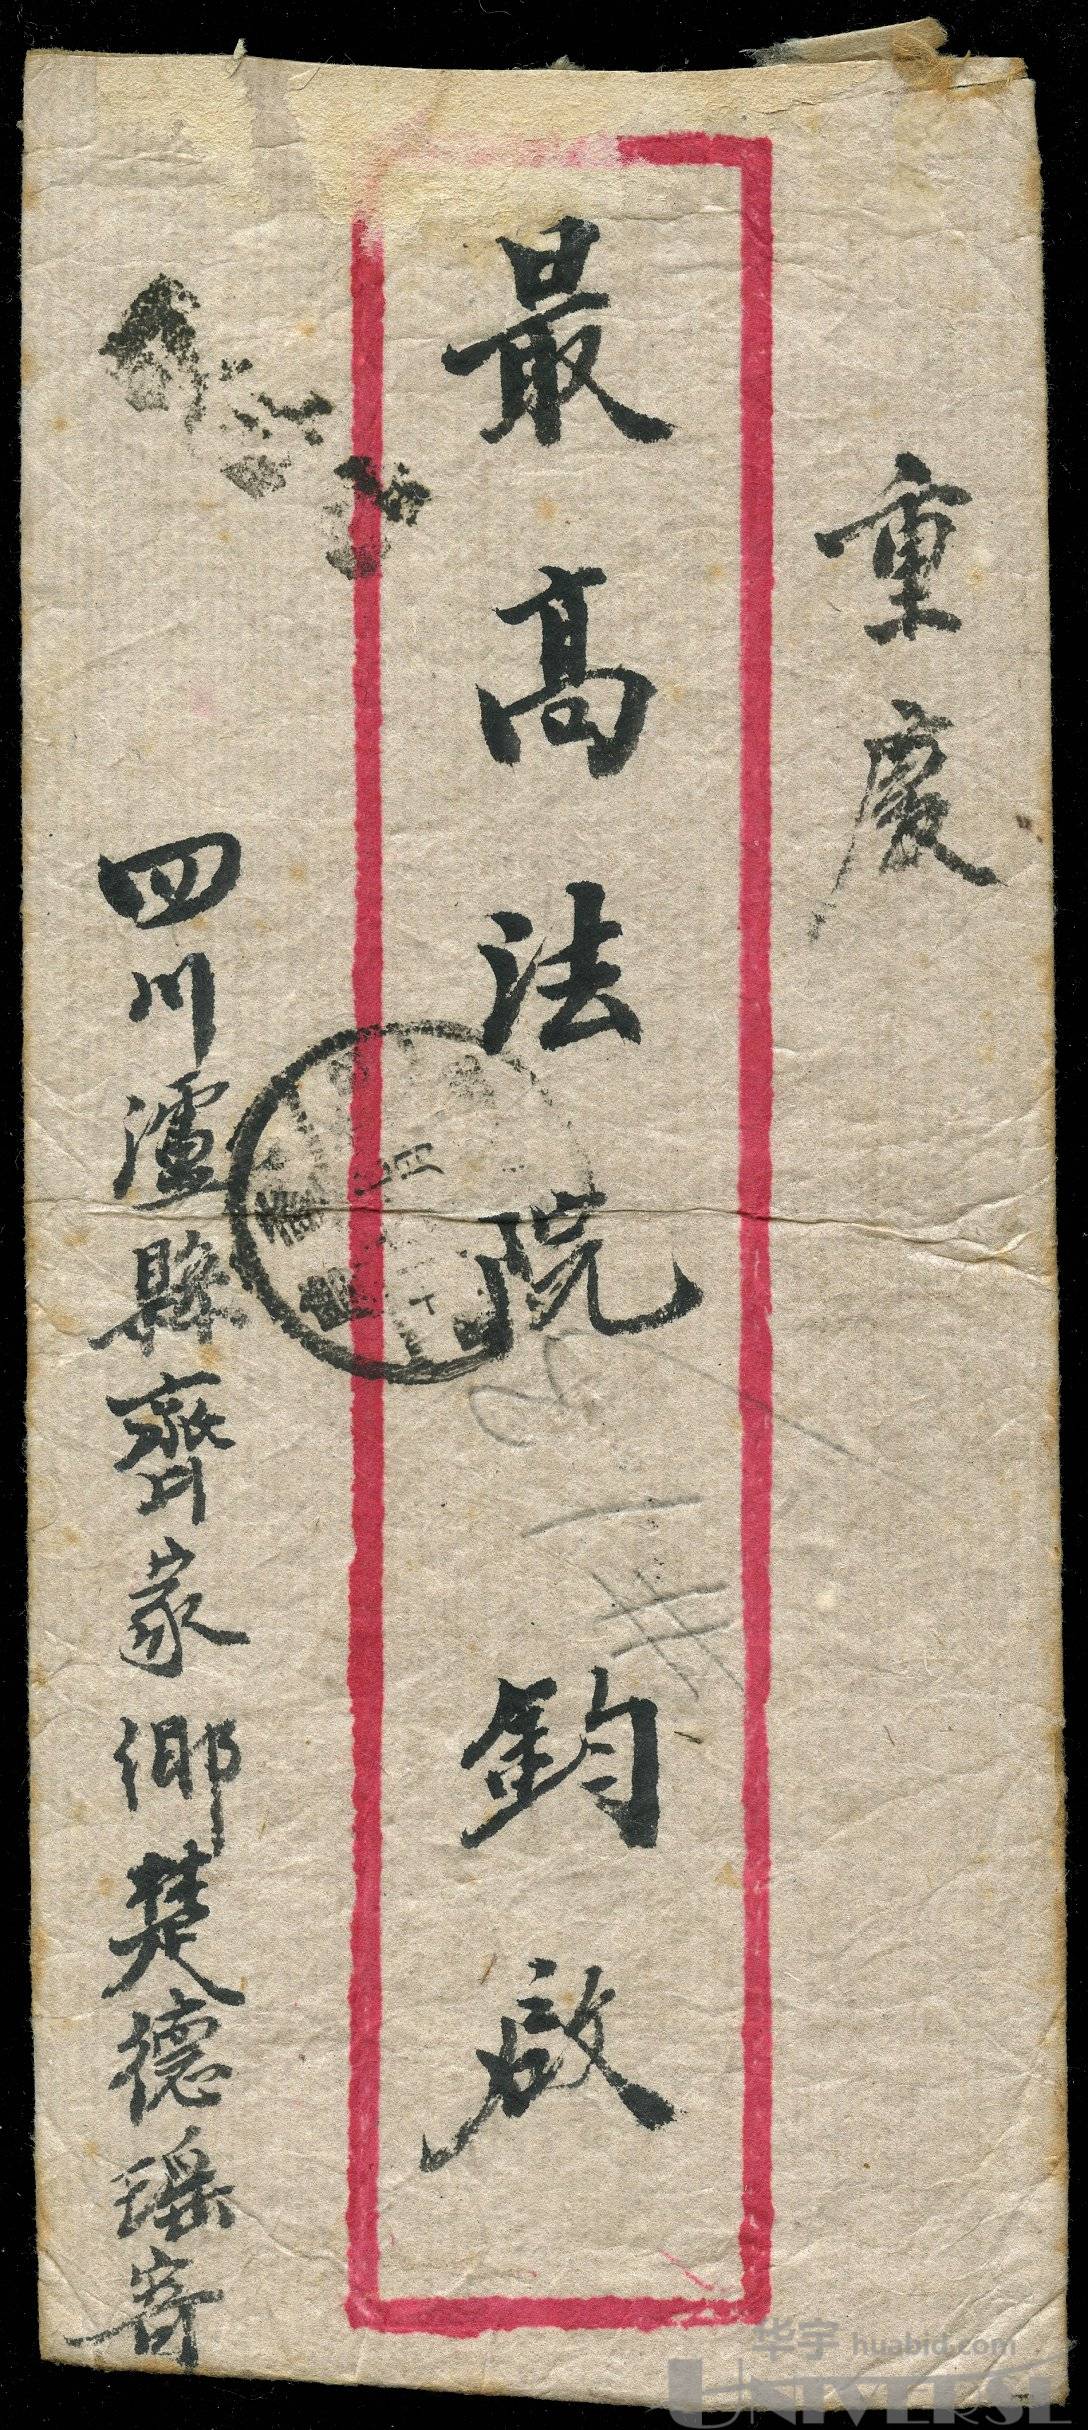 重慶
最高法院 鈞啟
四川瀘縣齊家鄉楚德瑶寄
华宇 huabid.com
UNIVERSE